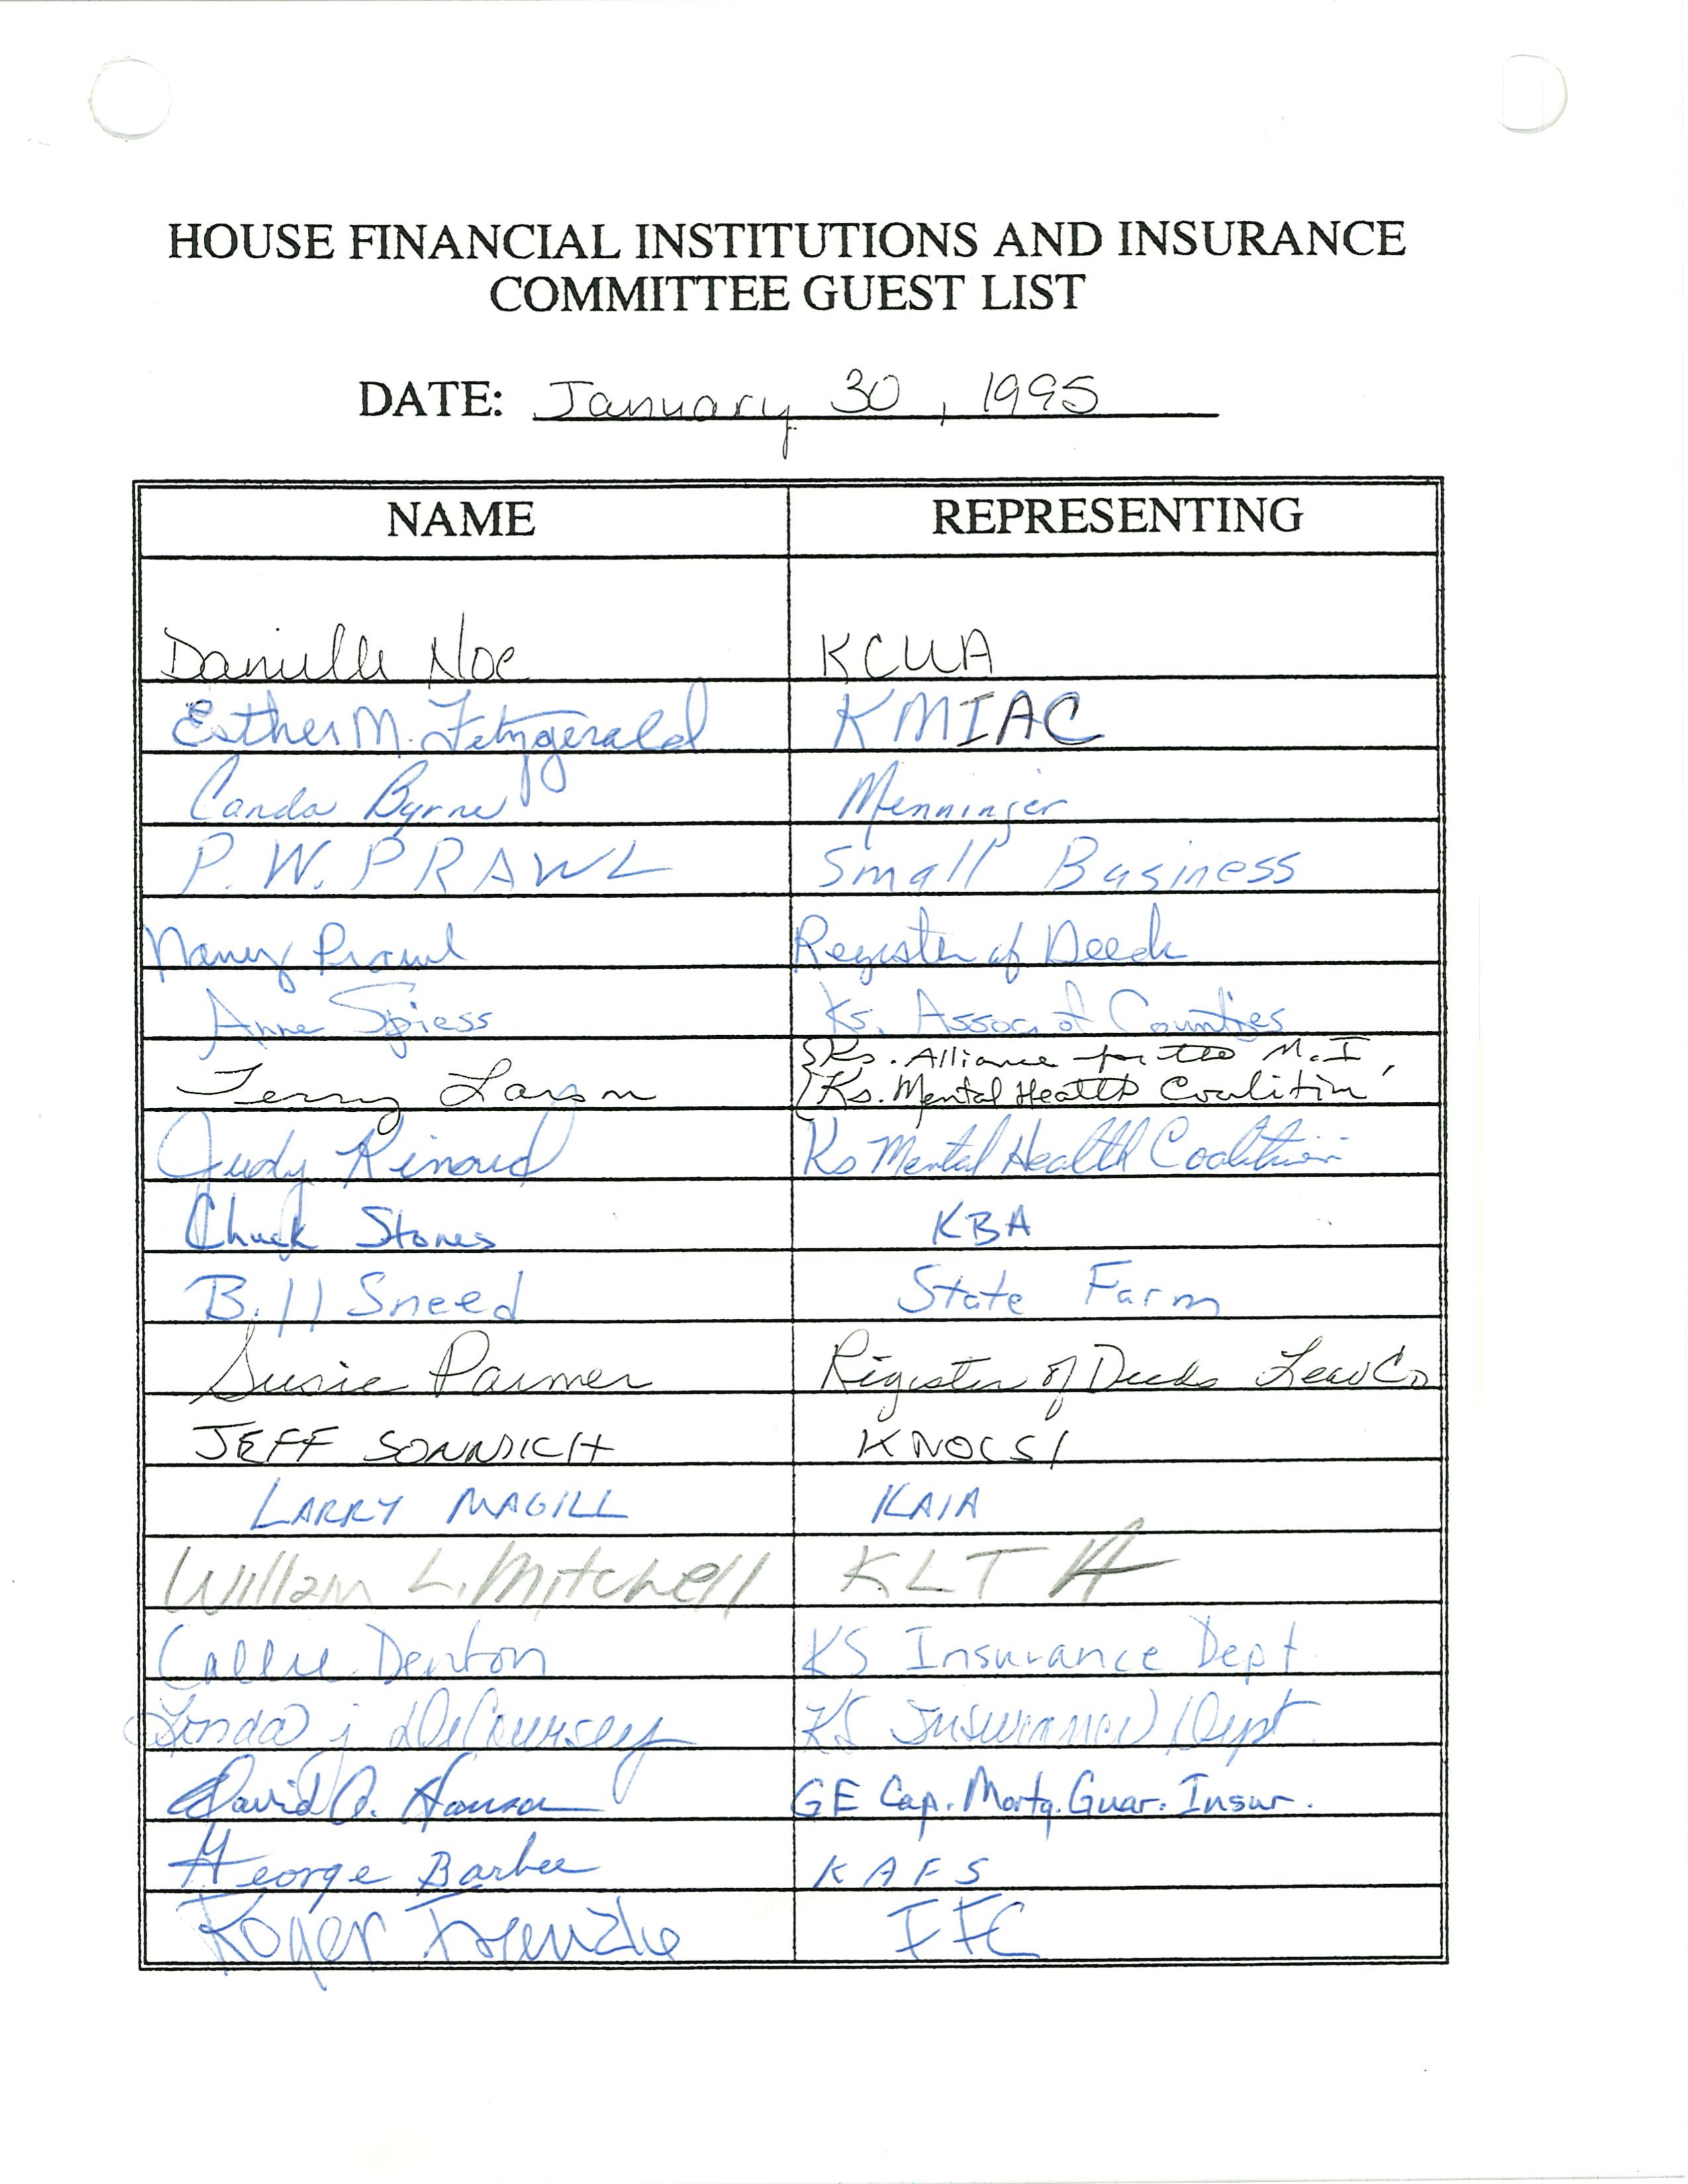 HOUSE FINANCIAL INSTITUTIONS AND INSURANCE
COMMITTEE GUEST LIST
DATE: January 30, 1995
NAME REPRESENTING
Danielle Noe KCUA
Esther M. Fitzgerald KMIAC
Canda Byrne Menninger
P.W. PRAWL Small Business
Nancy Prawl Register of Deeds
Anne Spiess Ks. Assoc. of Counties
Terry Larson Ks. Alliance for the M.I,
Ks. Mental Health Coalition
Judy Ks Mental Health Coalition
Chuck Stones KBA
Bill Sneed State Farm
Susie Parmer Register of Deeds Co
JEFF SONNICH KNOCSI
LARRY MAGILL KAIA
William L. Mitchell KLTA
Callie Denton KS Insurance Dept.
Linda j DeCoursey KS Insurance Dept.
David A. Hanson GE Cap. Mortg. Guar. Insur.
George Barbee KAFS
Roger